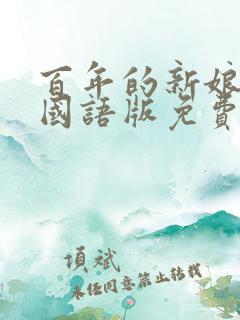 百年的新娘
國語版免費
項斌
未任同意禁止转载